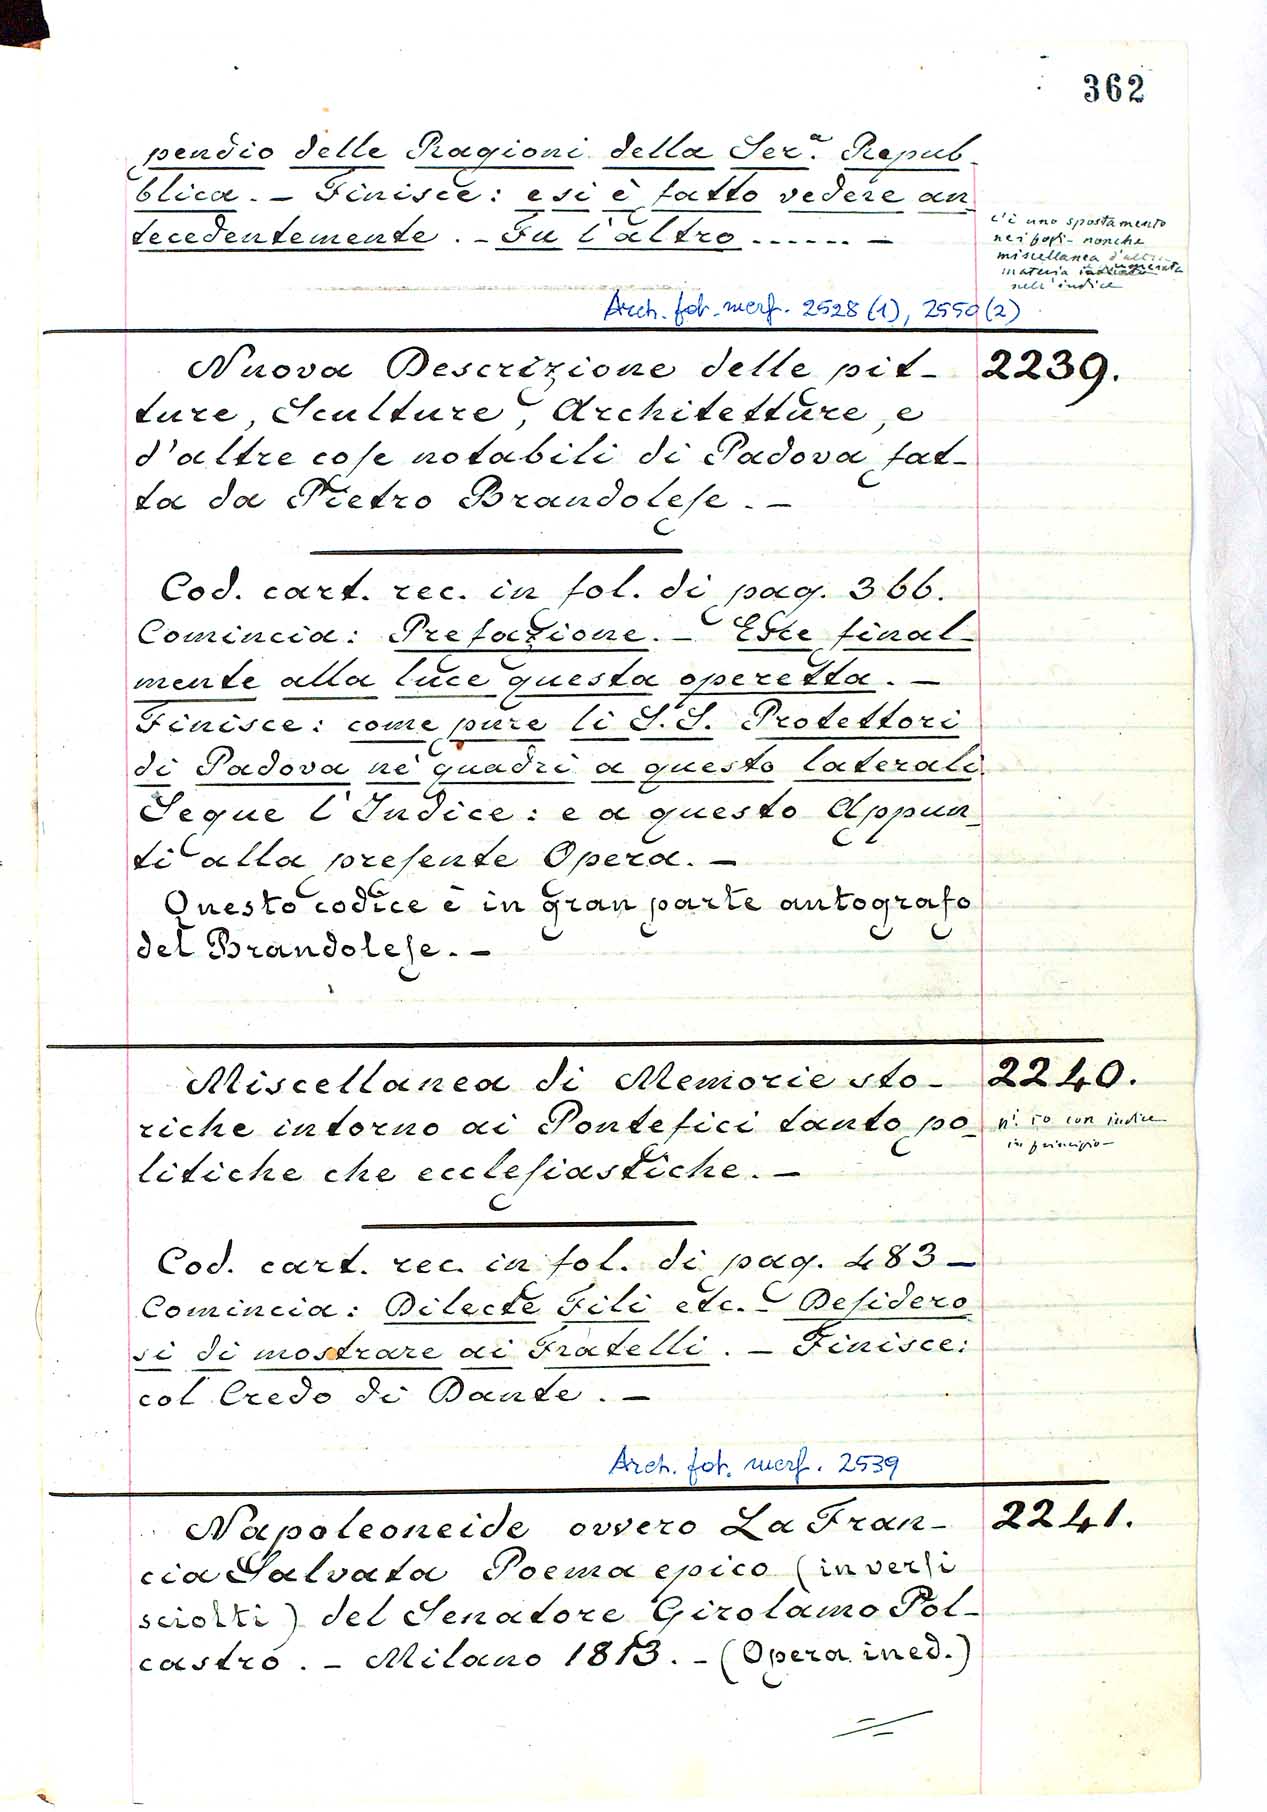 362
pendio delle Ragioni della Ser.ª Repub-
blica. – Finisce: e si è fatto vedere an-
tecedentemente. – Fu l'altro ...... –
c'è uno spostamento
nei fogli – nonché
miscellanea d'altra
materia numerata
nell'indice
Arch. fot. merf. 2528 (1), 2550 (2)
Nuova Descrizione delle pit-
2239.
ture, Sculture, Architetture, e
d'altre coſe notabili di Padova fat-
ta da Pietro Brandoleſe. –
Cod. cart. rec. in fol. di pag. 366.
Comincia: Prefazione. – Esce final-
mente alla luce questa operetta. –
Finisce: come pure li S.S. Protettori
di Padova ne' quadri a questo laterali
Segue l'Indice: e a questo Appun-
ti alla preſente Opera. –
Questo codice è in gran parte autografo
del Brandoleſe. –
Miscellanea di Memorie sto-
2240.
riche intorno ai Pontefici tanto po-
litiche che eccleſiastiche. –
n.i 50 con indice
in principio –
Cod. cart. rec. in fol. di pag. 483 –
Comincia: Dilecte Fili etc. – Deſidero
si di mostrare ai Fratelli. – Finisce:
col Credo di Dante. –
Arch. fot. merf. 2539
Napoleoneide ovvero La Fran-
2241.
cia Salvata Poema epico (in verſi
sciolti) del Senatore Girolamo Pol-
castro. – Milano 1813. – (Opera ined.)